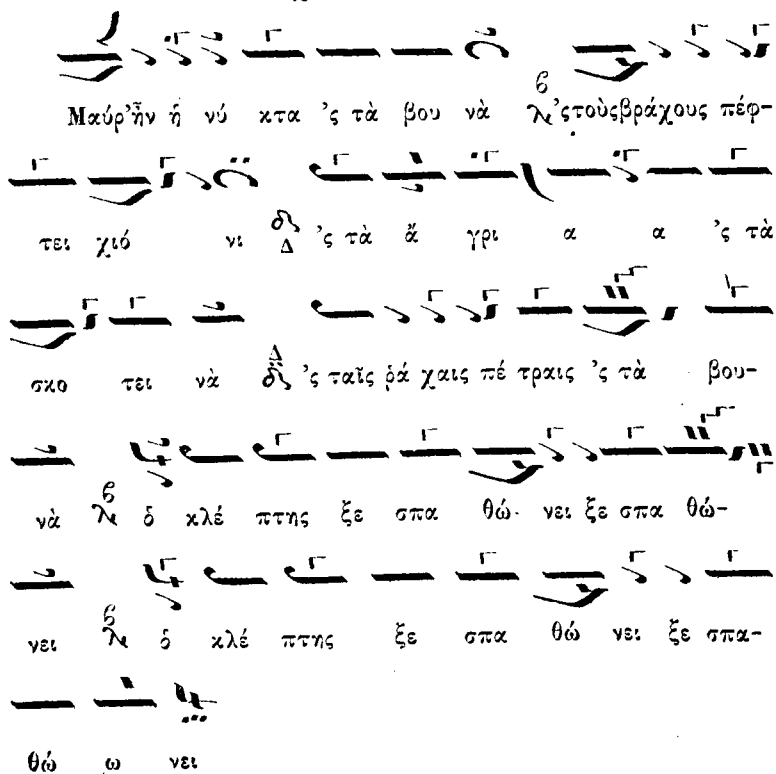 Μαύρ'ἦν ἡ νύ κτα 'ς τὰ βου νὰ 'ςτοὺςβράχους πέφ-
τει χιό νι Δ 'ς τὰ ἄ γρι α α 'ς τὰ
σκο τει νὰ Δ 'ς ταῖς ῥά χαις πέ τραις 'ς τὰ βου-
νὰ ὁ κλέ πτης ξε σπα θώ νει ξε σπα θώ-
νει ὁ κλέ πτης ξε σπα θώ νει ξε σπα-
θώ ω νει